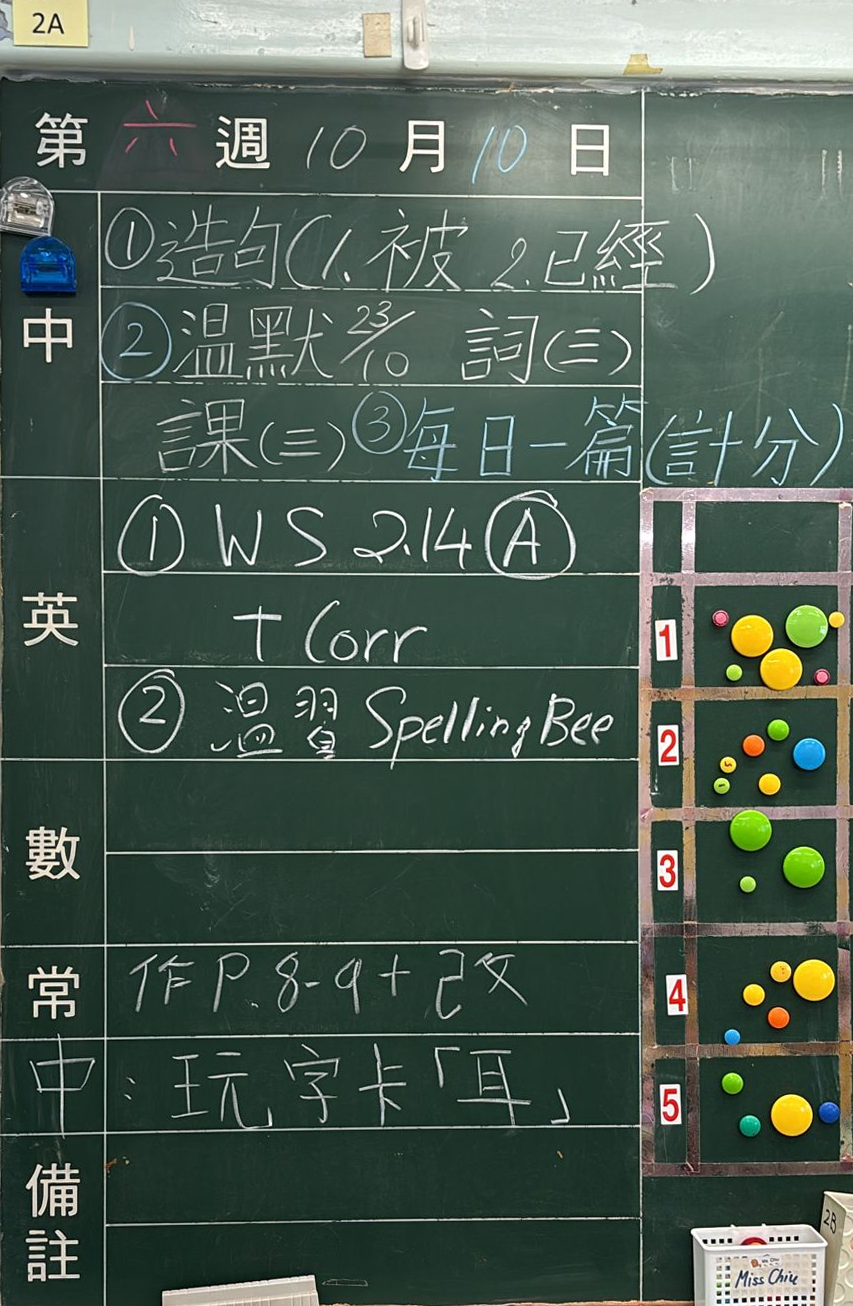 2A
第六週10月10日
中
①造句(1.被 2.已經)
②温默23/10 詞(三)
課(三)③每日一篇(計分)
英
①WS 2.14Ⓐ
+Corr
②温習Spelling Bee
數
常
作P.8-9+改
中:玩字卡「耳」
備註
1
2
3
4
5
2B
Miss Chiu